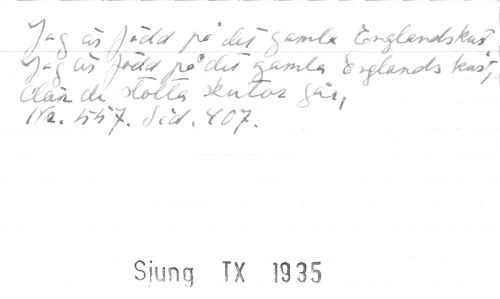 Jag är född på det gamla Englandskust,
Jag är född på det gamla Englands kust,
där de stolta skutor går,
Nr. 557. Sid. 407.
Sjung TX 1935